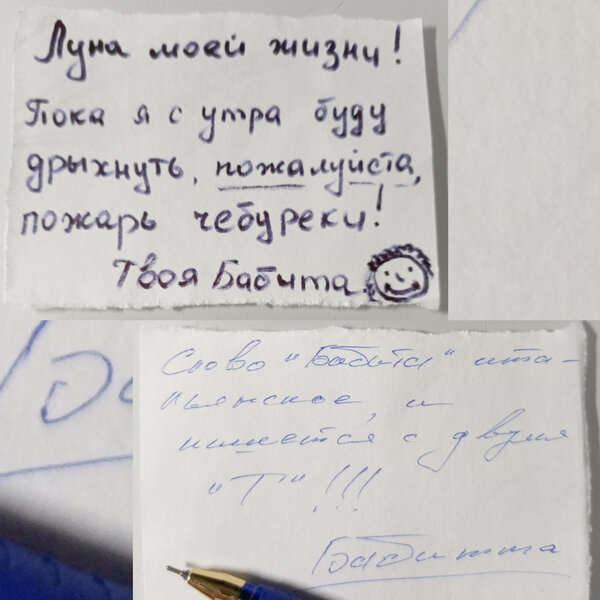 Луна моей жизни!
Пока я с утра буду
дрыхнуть, пожалуйста,
пожарь чебуреки!
Твоя Бабита.
Слово "Бабита" ита-
льянское, и
пишется с двумя
"Т"!!!
Бабитта